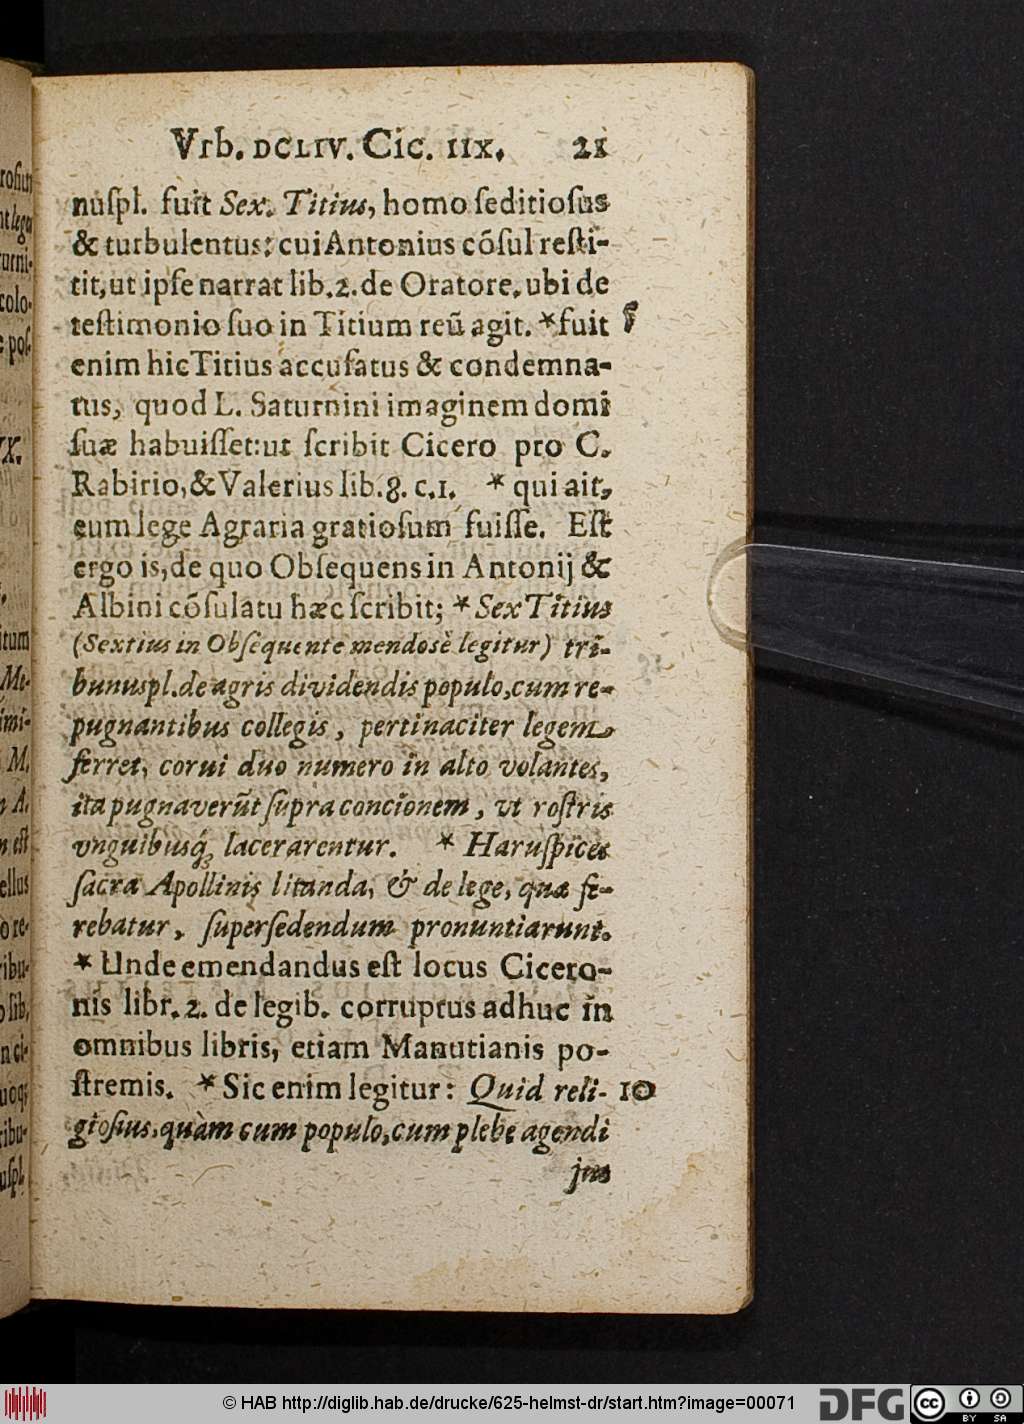 Vrb. DCLIV. Cic. IIX. 21
nuſpl. fuit Sex. Titius, homo ſeditioſus
& turbulentus: cui Antonius cõſul reſti-
tit, ut ipſe narrat lib. 2. de Oratore, ubi de
teſtimonio ſuo in Titium reũ agit. * fuit
enim hic Titius accuſatus & condemna-
tus, quod L. Saturnini imaginem domi
ſuæ habuiſſet: ut ſcribit Cicero pro C.
Rabirio, & Valerius lib. 8. c. 1. * qui ait,
eum lege Agraria gratioſum fuiſſe. Eſt
ergo is, de quo Obſequens in Antonij &
Albini cõſulatu hæc ſcribit; * Sex Titius
(Sextius in Obſequente mendosè legitur) tri-
bunus pl. de agris dividendis populo, cum re-
pugnantibus collegis, pertinaciter legem
ferret, corui duo numero in alto volantes,
ita pugnaverũt ſupra concionem, vt roſtris
vnguibusq́; lacerarentur. * Haruſpices
ſacra Apollinis litanda, & de lege, quæ fe-
rebatur, ſuperſedendum pronuntiarunt.
* Unde emendandus eſt locus Cicero-
nis libr. 2. de legib. corruptus adhuc in
omnibus libris, etiam Manutianis po-
ſtremis. * Sic enim legitur: Quid reli- 10
gioſius, quàm cum populo, cum plebe agendi
jus
© HAB http://diglib.hab.de/drucke/625-helmst-dr/start.htm?image=00071
DFG
cc
BY SA